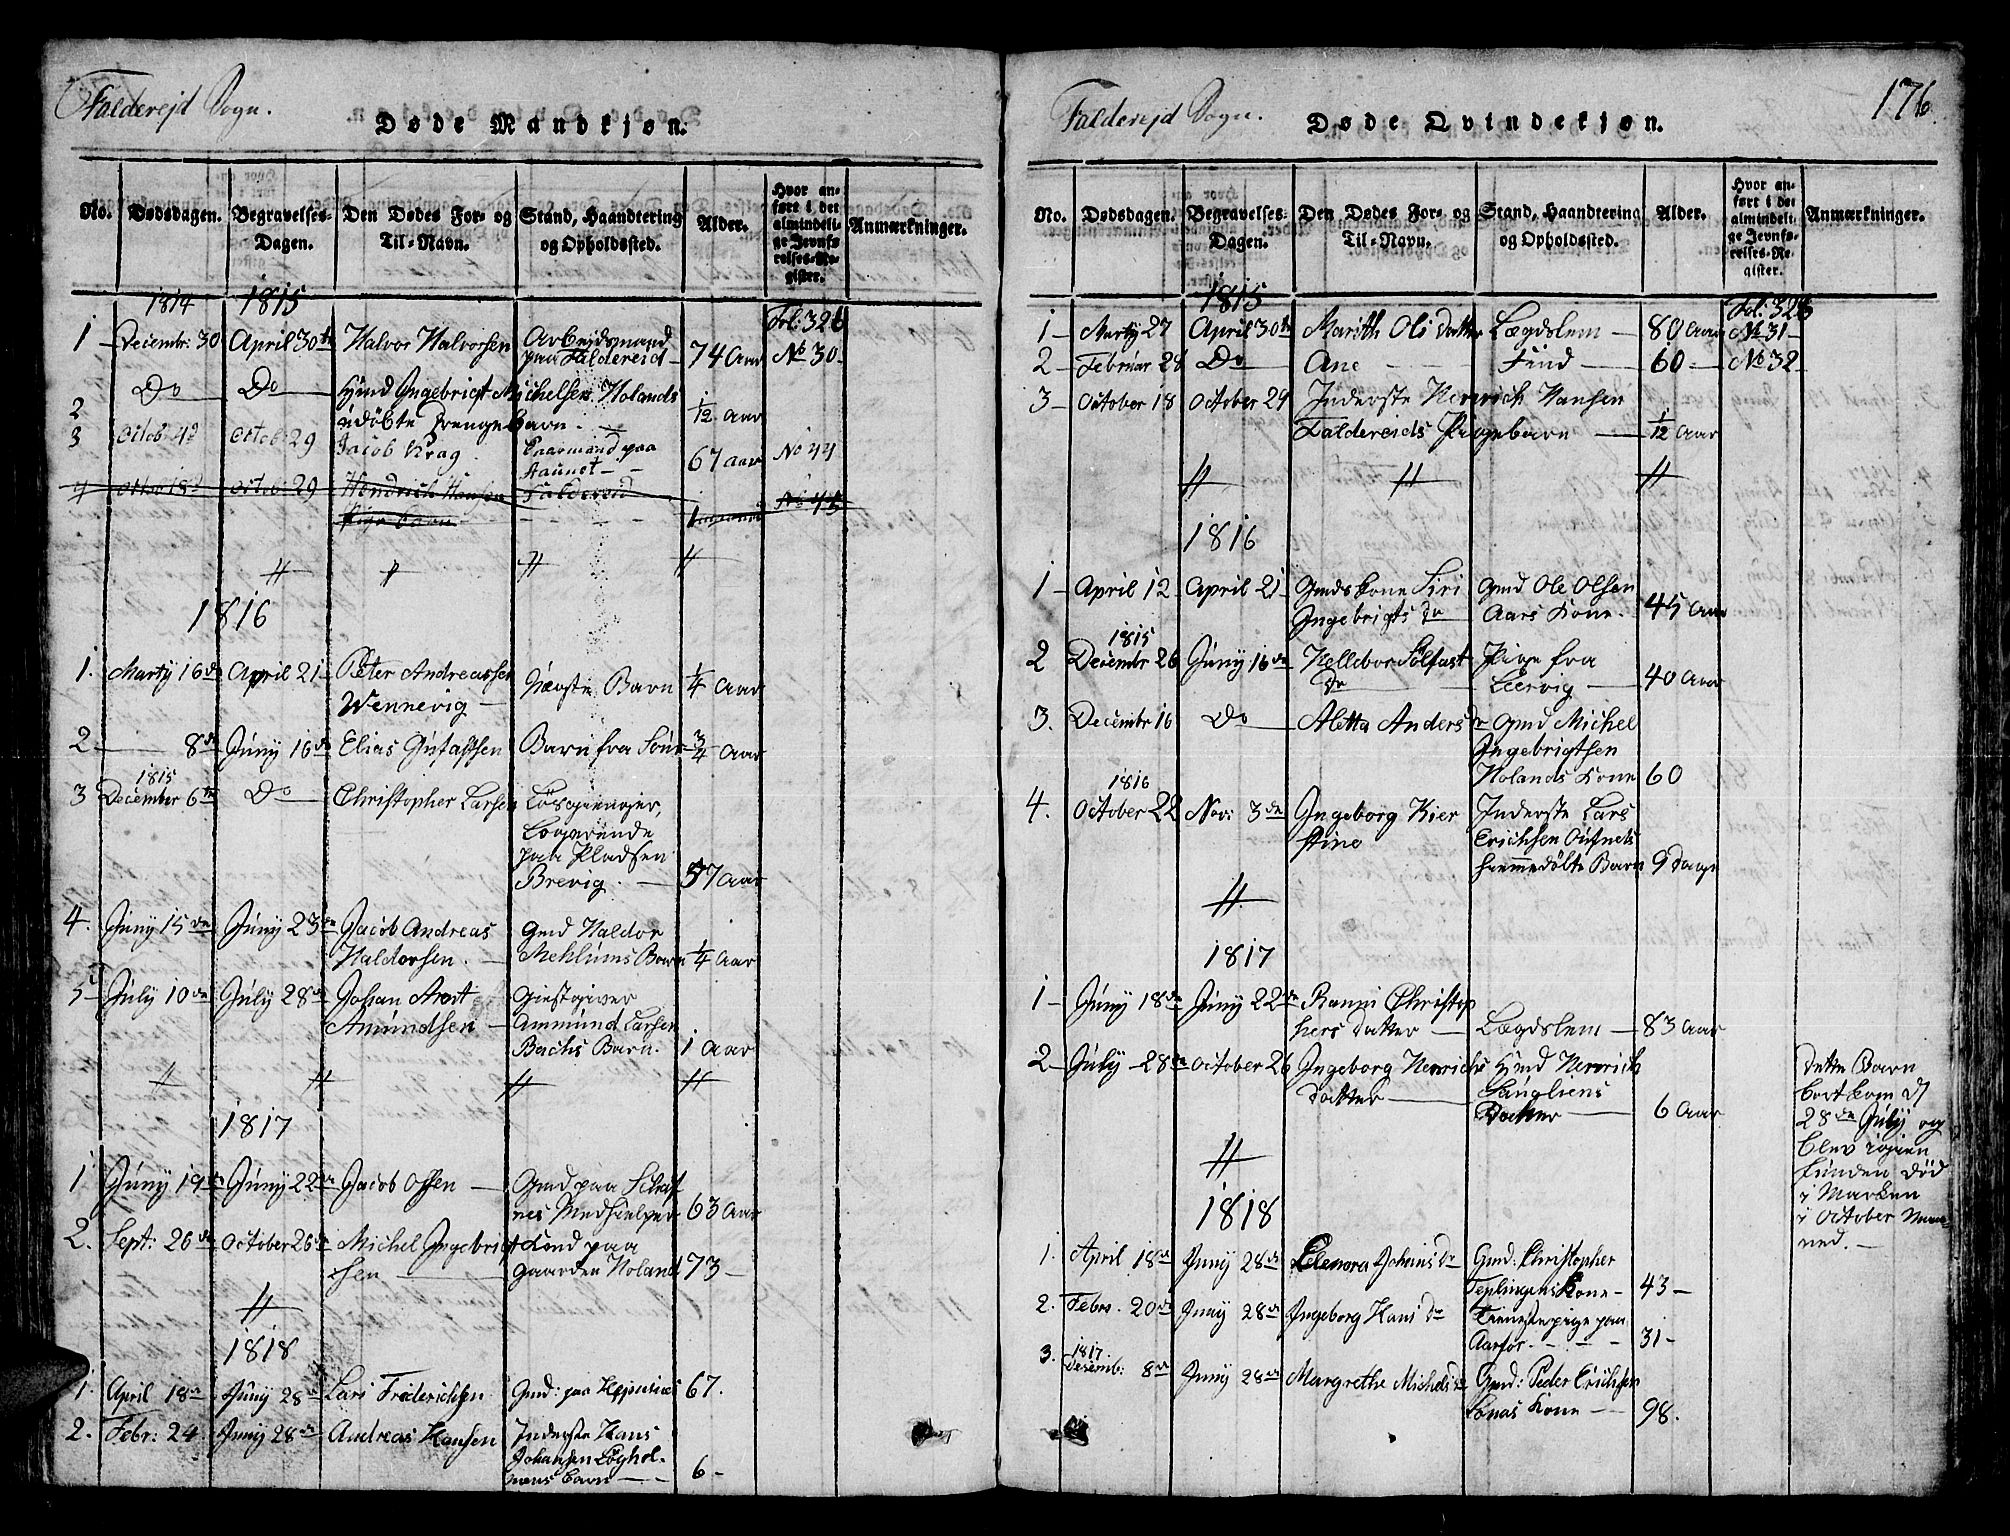 Falderejd Sogn.
Døde Mandkjøn.
No.
Dødsdagen.
Begravelses-
Dagen.
Den Dødes For- og
Til-Navn.
Stand, Haandtering
og Opholdssted.
Alder.
Hvor an-
ført i det
almindeli-
ge Jevnfø-
relses-Re-
gister.
Anmærkninger.
1814 1815 Fol: 326
1 Decembr: 30 April 30te Halvor Halvorsen Arbejdsmand
paa Faldereid 74 Aar No 30
2 Do Do Hmd Ingebrigt Michelsen Holands
udøbte Drengebarn. 1/12 Aar
3 Octob: 4d Octob: 29 Jacob Krag. Enarmand paa
Aaunet 67 Aar No 44
4 Octob 18d Octob: 29 Hendrich Hansen Faldereid No 45
Pige barn 1
1816
1. Marty 16de April 21 Peter Andreassen
Wennevig Næoste Barn 1/4 Aar
2 8de Juny 16de Elias Gustafsen Barn fra Sour 3/4 Aar
1815
3 December 6te Do Christopher Larsen Løsgienger,
Logerende
paa Pladsen
Brevig. 57 Aar
4. Juny 15de Juny 23de Jacob Andreas Gmd Haldor
Haldorsen. Mehlums Barn 1/4 Aar
5 July 10de July 28de Johan Arnt Giestgiver
Amundsen Ammund Larsen
Bachs Barn. 1 Aar
1817
1 Juny 19de Juny 22de Jacob Olsen Gmd paa Schef
nes Medhielper 63 Aar
2. Sept: 26de October 26de Michel Ingebrigt Kond paa
sen gaarden Holand 73
1818
1. April 18de Juny 28de Lars Frederichsen Gmd: paa 67.
2. Febr: 24 Juny 28de Andreas Hansen Inderste Hans
Johansen Løghol-
mens barn 6
Falderejd Sogn.
Døde Qvindekjøn.
176
No.
Dødsdagen.
Begravelses-
Dagen.
Den Dødes For- og
Til-Navn.
Stand, Haandtering
og Opholdssted.
Alder.
Hvor an-
ført i det
almindeli-
ge Jevnfø-
relses-Re-
gister.
Anmærkninger.
1815 Fol: 326
1 Marty 27 April 30te Marith Ols Datter Lægdslem 80 Aar No 31
2 Februar 28 Do Ane Find 60 No 32
3 October 18 October 29 Inderste Henrich Hansen
Faldereids Pigebarn 1/12 Aar
1816
1 April 12 April 21 Gmds kone Siri Gmd Ole Olsen
Ingebrigts Dr Aars Kone. 45 Aar
1815
2 Decembr 26 Juny 16de Hellebor Solfast Pige fra
Dr Leervig 40 Aar
3. Decembr 16 Do Aletta Anders Dr Gmd Michel
Ingebrigtsen
Holands Kone 60
1816
4. October 22 Nov: 3de Ingeborg Kier Inderste Lars
stine Erichsen Outnets
hiemmedøbte Barn 9 Dage
1817
1 Juny 18de Juny 22de Ranni Christop
hers Datter Lægdslem 83 Aar
2 July 28de October 26 Ingeborg Henrichs Hmd Henrich
Datter Langliens
Datter 6 Aar
Dette Barn
bortkom d
28de July og
blev igien
funden død
i Marken
i October Maa-
ned.
1818
1. April 18de Juny 28de Elenora Johans Dr Gmd: Christopher
Teplingens Kone 43
2. Febr. 20de Juny 28de Ingeborg Hans Dr Tienestepige paa
Aarfor 31
1817
3. Desemb: 8de Juny 28de Margrethe Michels Dr Gmd: Peder Erichsen
Sonas Kone 98.